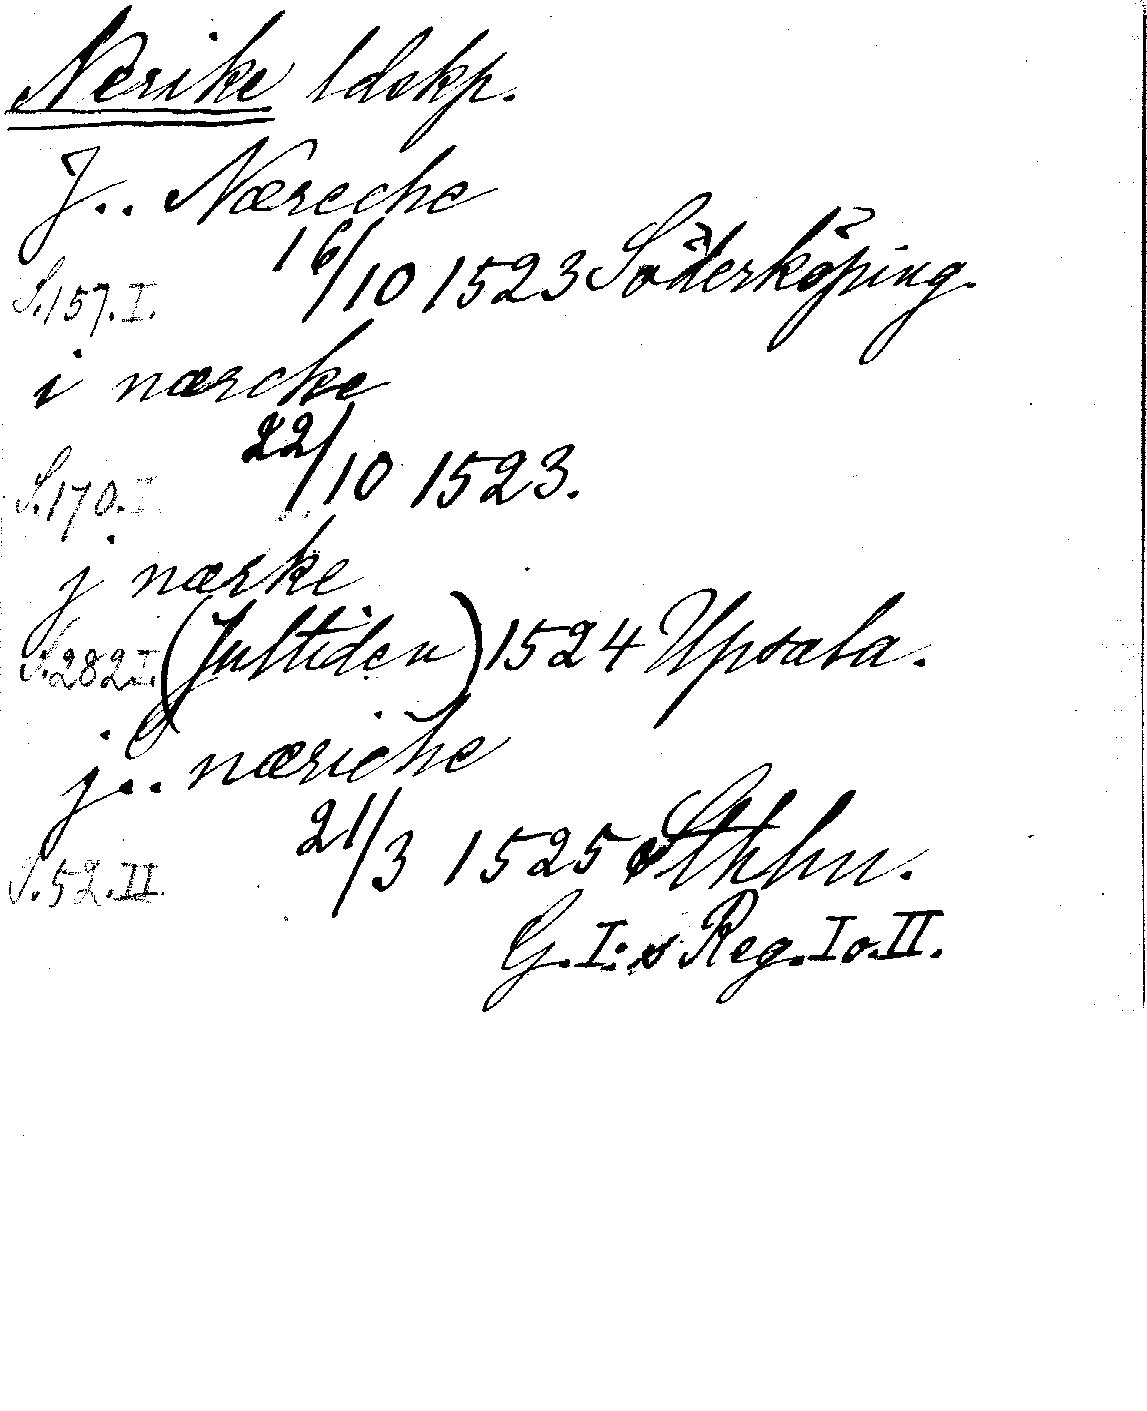 Nerike ldskp.
J.. Næreche
16/10 1523 Söderköping.
S.157.I.
i nærcke
22/10 1523.
S.170.I.
j nærke
S.282 I. (Jultiden) 1524 Upsala.
j.. næriche
21/3 1525 Sthlm.
S.52.II.
G.I:s Reg. I o. II.